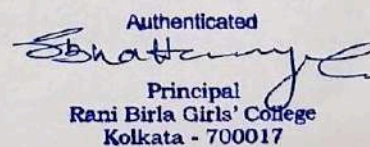 Authenticated
Principal
Rani Birla Girls' College
Kolkata - 700017